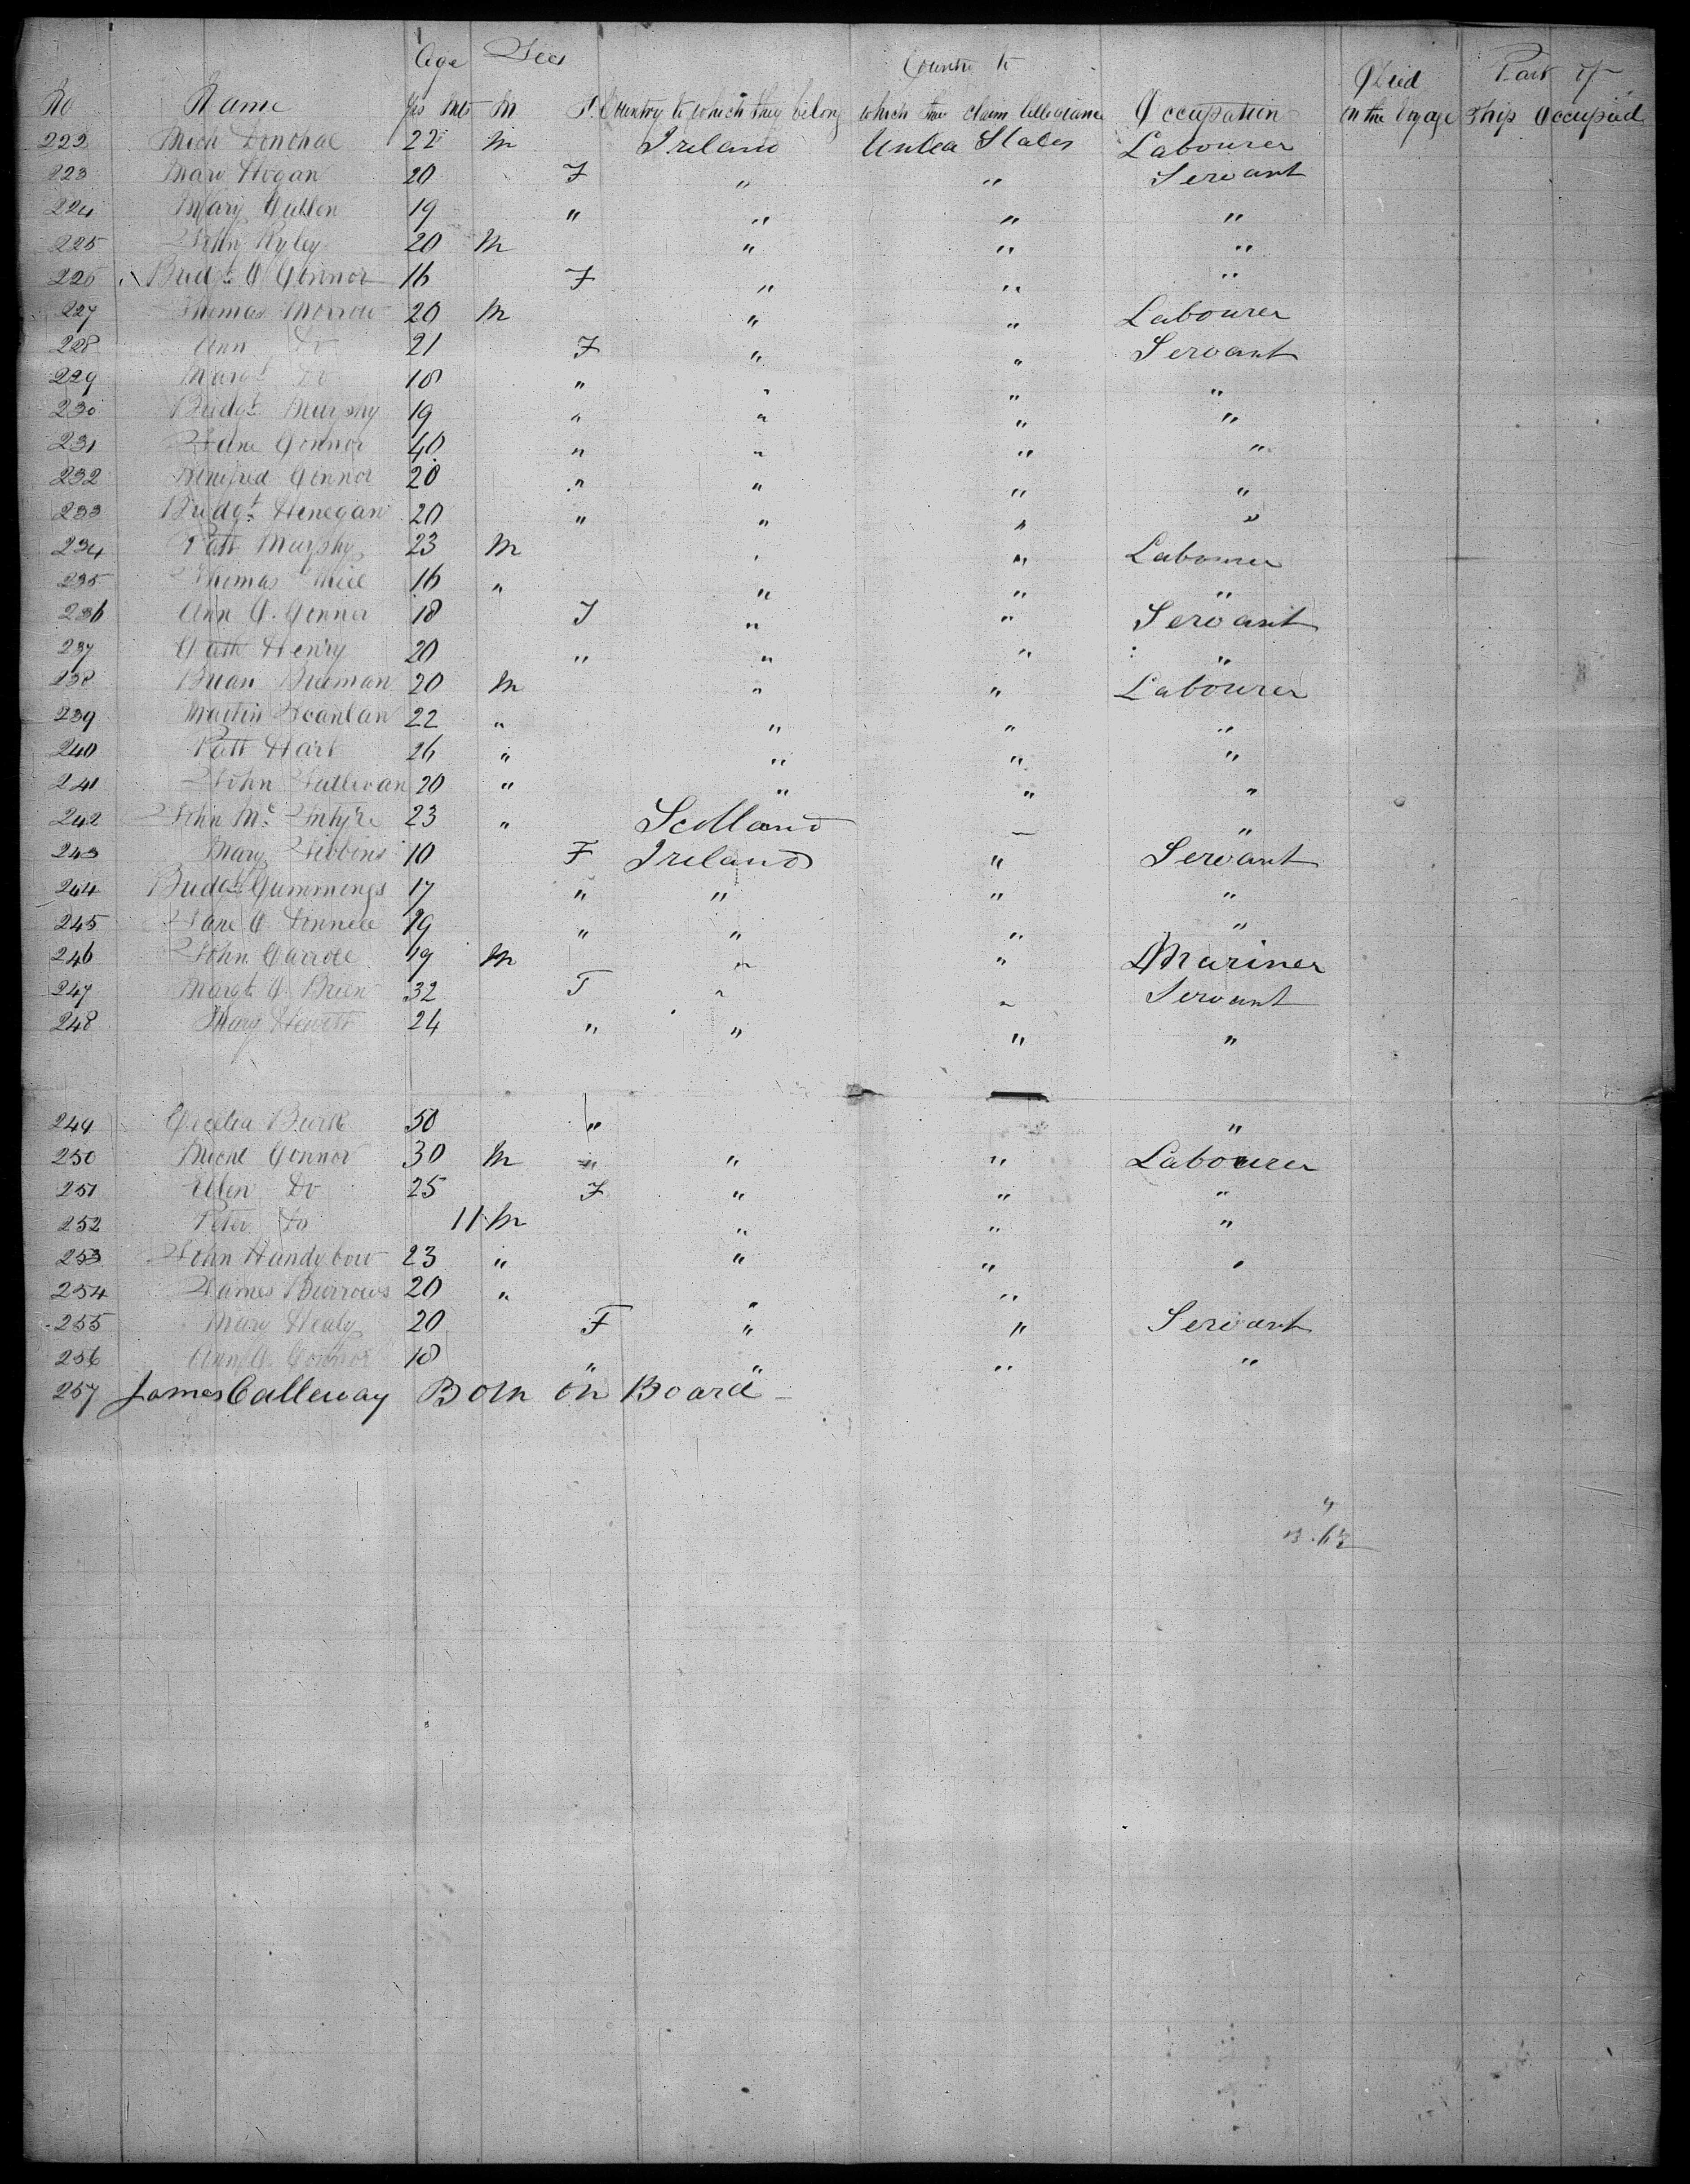 Age Sex Country to Died Part of
No Name Yrs Mts M F. Country to which they belong which they claim Allegiance Occupation on the Voyage Ship Occupied
222 Mich Donohae 22 M Ireland United States Labourer
223 Mary Hogan 20 F " " Servant
224 Mary Cullen 19 " " " "
225 John Ryley 20 M " " "
226 Bridgt O Connor 16 F " " "
227 Thomas Morrow 20 M " " Labourer
228 Ann Do 21 F " " Servant
229 Margt Do 18 " " " "
230 Bridgt Murphy 19 " " " "
231 Jane Connor 40 " " " "
232 Winifred Connor 20 " " " "
233 Bridgt Henegan 20 " " " "
234 Patt Murphy 23 M " " Labourer
235 Thomas 16 " " " "
236 Ann O. Conner 18 F " " Servant
237 Cath Henry 20 " " " "
238 Brian 20 M " " Labourer
239 Martin Scanlan 22 " " " "
240 Patt Hart 26 " " " "
241 John Sullivan 20 " " " "
242 John Mc Intyre 23 " Scotland " "
243 Mary Gibbins 10 F Ireland " Servant
244 Bridgt Cummings 17 " " " "
245 Jane O. Donnell 19 " " " "
246 John Carroll 19 M " " Mariner
247 Margt O. Brien 32 F " " Servant
248 Mary Hewett 24 " " " "
249 Cecelia Burke 50 " "
250 Michl Connor 30 M " " " Labourer
251 Ellen Do 25 F " " "
252 Peter Do 11 M " " "
253 John Handybow 23 " " " "
254 James Burrows 20 " " "
255 Mary Healy 20 F " " Servant
256 Ann O. Connor 18 " " " "
257 James Calleway Born on Board